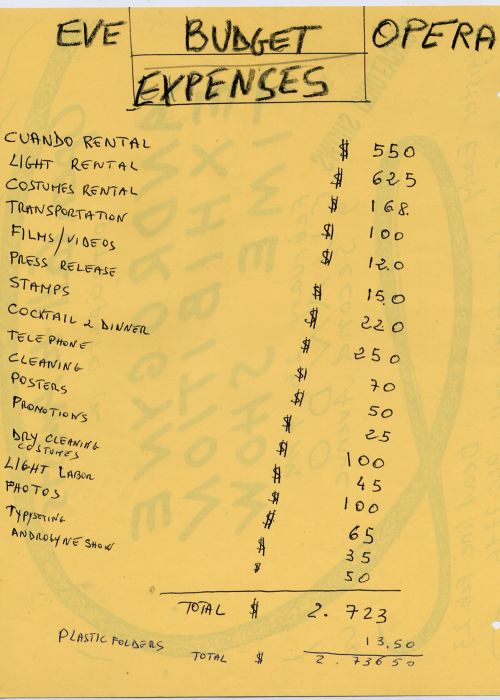 EVE BUDGET OPERA
EXPENSES
CUANDO RENTAL $ 550
LIGHT RENTAL $ 625
COSTUMES RENTAL $ 168.
TRANSPORTATION $ 100
FILMS/VIDEOS $ 12.0
PRESS RELEASE $ 15.0
STAMPS $ 220
COCKTAIL & DINNER $ 250
TELEPHONE $ 70
CLEANING $ 50
POSTERS $ 25
PROMOTIONS $ 100
DRY CLEANING COSTUMES $ 45
LIGHT LABOR $ 100
PHOTOS $ 65
TYPYSETING $ 35
ANDROGYNE SHOW $ 50
TOTAL $ 2.723
PLASTIC FOLDERS 13.50
TOTAL $ 2.73650